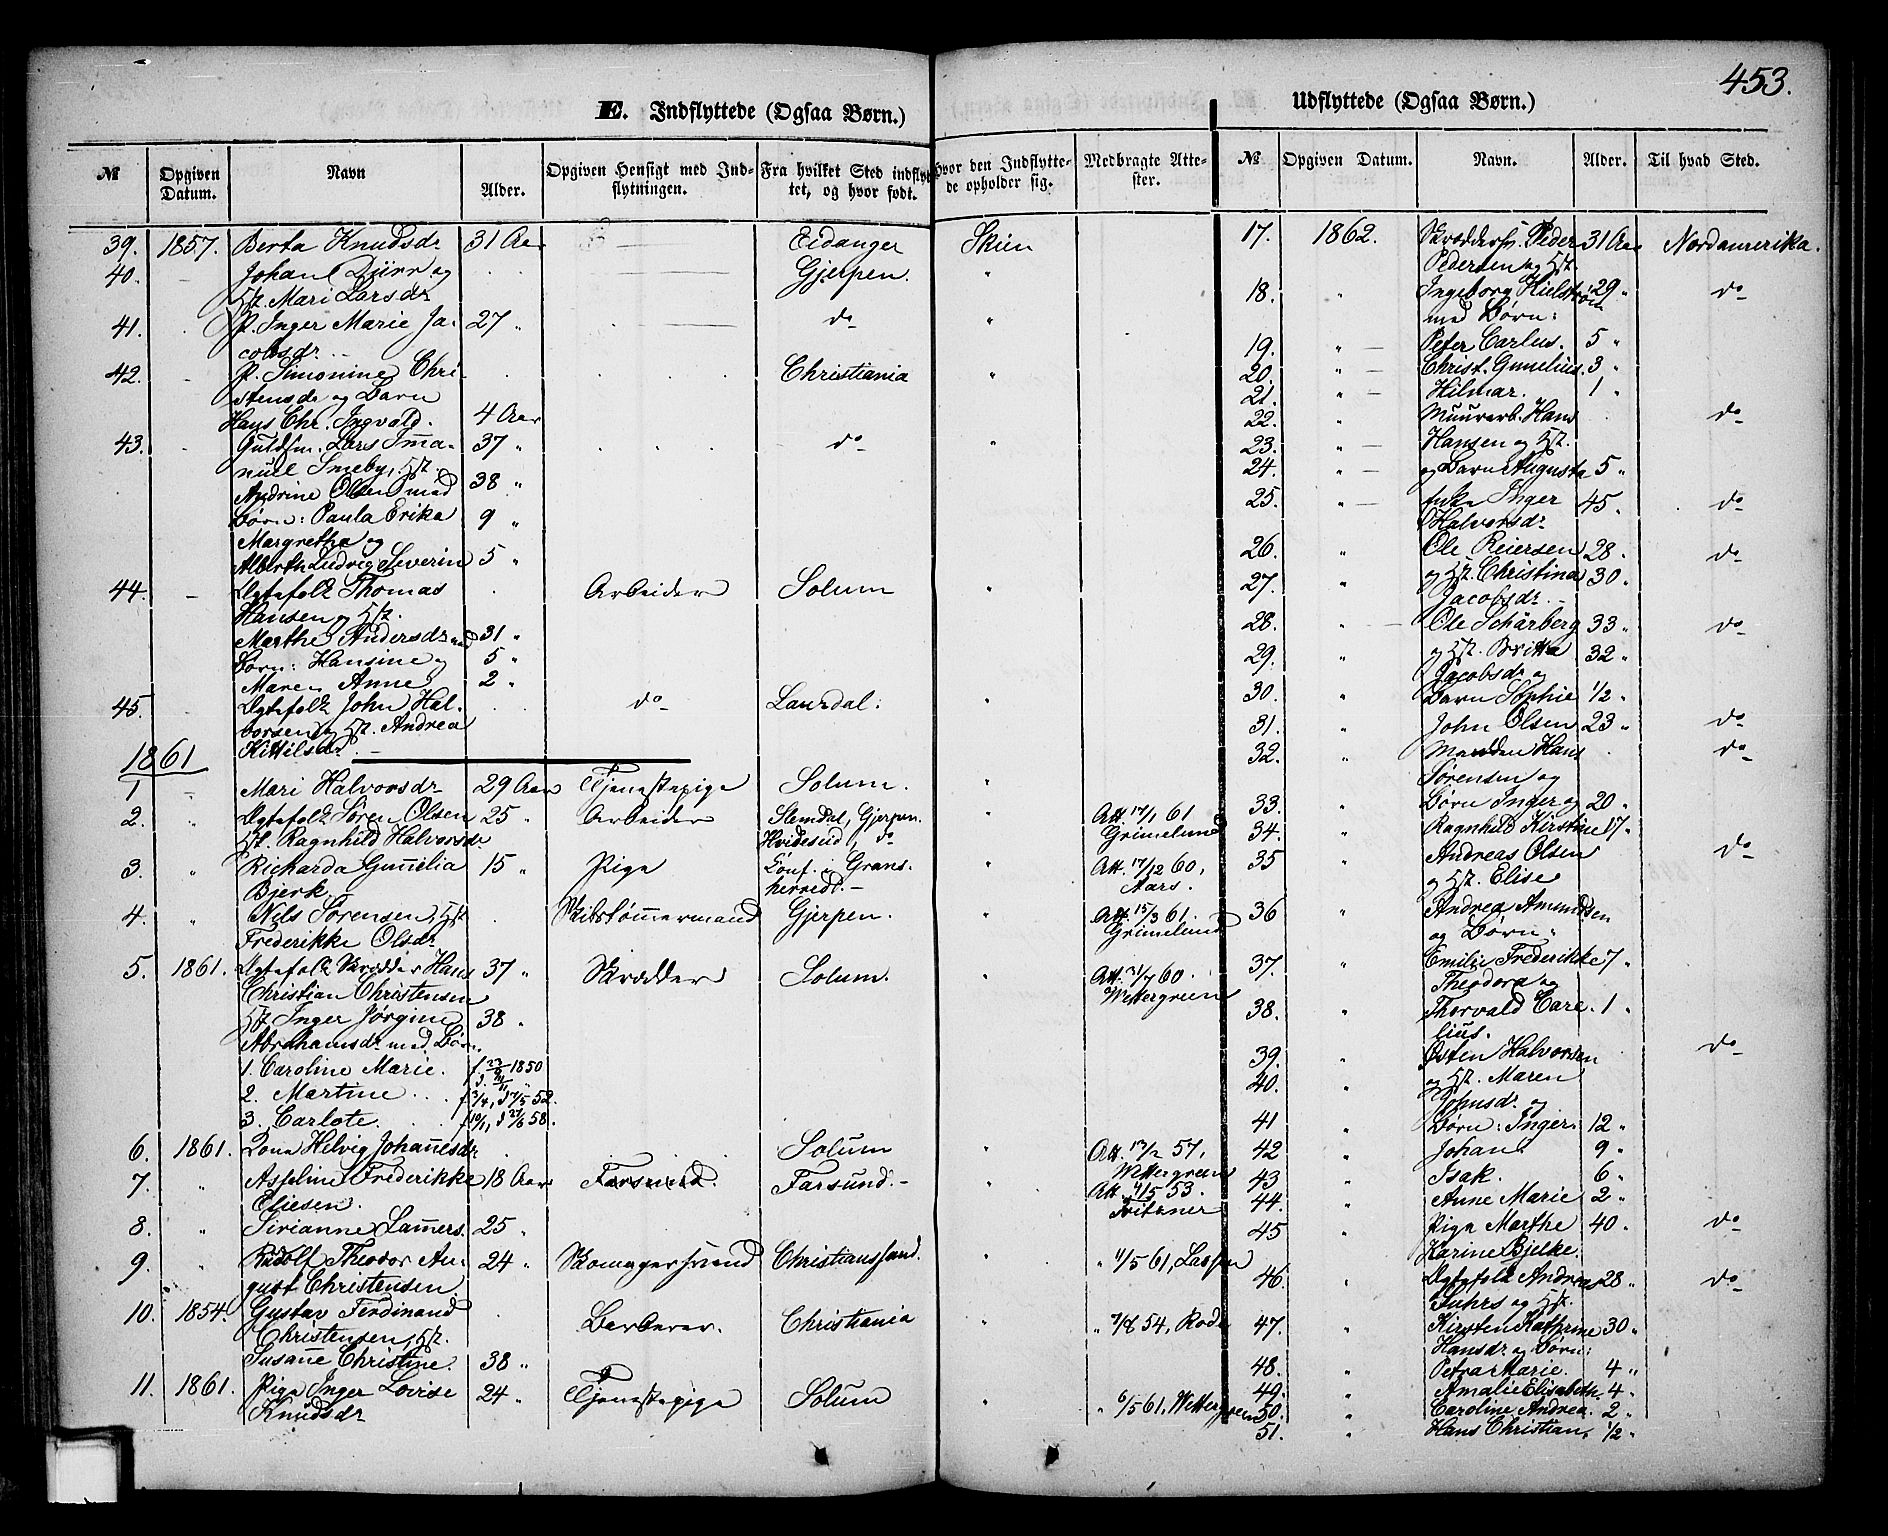 453.
E. Indflyttede (Ogsaa Børn.)
№ Opgiven Datum. Navn Alder. Opgiven Hensigt med Indflytningen. Fra hvilket Sted indflyttet, og hvor født. Hvor den Indflyttede opholder sig. Medbragte Attester.
39. 1857. Berta Knudsdr 31 Aar Eidanger Skien
40. Johan Dürr og Gjerpen. "
Hst. Mari Larsdr
41. P. Inger Marie Ja- 27 " do "
cobsdr
42. P. Simonine Chri- Christiania "
stensdr og Barn
Hans Chr. Ingvald. 4 Aar
43. Guldsm. Lars Ima- 37 " do "
nuel Smeby, Hst.
Andrine Olsen med 38 "
Børn: Paula Erika 9 "
Margrethe og
Alberth Ludvig Severin 5 "
44. Ægtefolk Thomas Arbeider Solum "
Hansen og Hst.
Marthe Andersdr med 31 "
Børn: Hansine og 5 "
Maren Anne 2 "
45. Ægtefolk John Hal- do Laurdal. "
vorsen og Hst. Andrea
Kittilsdr.
1861
1 Mari Halvorsdr 29 Aar Tjenestepige Solum. "
2. " Ægtefolk Søren Olsen 25 " Arbeider Slemdal, Gjerpen. Att. 17/1 61
Hst. Ragnhild Halvorsdr Hvidesud, do Grimelund
3. " Richarda Gunelia 15 " Pige Conf. i Grans- " Att. 17/12 60,
Bjerk herred. Aars.
4. " Nels Sørensen, Hst. Skibstømermand Gjerpen. " Att. 15/3 61.
Frederikke Olsdr Grimelund
5. 1861. Ægtefolk Skrædder Hans 37 " Skrædder Solum. " Att. 31/7 60.
Christian Christensen Wettergreen
Hst Inger Jørgine 38 "
Abrahamsdr med Børn
1. Caroline Marie. f. 23/9 1850
2. Martine f 3/4, d 17/5 52.
3. Carlote. f 10/1, d 27/6 58.
6. 1861. Lona Helvig Johanesdr Solum " Att. 13/2 57,
Wettergreen
7. " Asseline Frederikke 18 Aar Farsund Farsund. " Att. 4/5 53.
Eliesen. Tribsner
8. " Sirianne Lamers. 25 "
9. " Rudolf Theodor Au- 24 " Skomagersvend Christianssand. " " 1/5 61, Lassen
gust Christensen.
10. 1854. Gustav Ferdinand Barberer. Christiania " " 7/8 54, Rode
Christensen, Hst.
Susane Christine. 38 "
11. 1861. Pige Inger Lovise 24 " Tjenestepige Solum " " 6/5 61, Wettergreen
Knudsdr
Udflyttede (Ogsaa Børn.)
№ Opgiven Datum. Navn. Alder. Til hvad Sted.
17. 1862. Skræddersv. Peder 31 Aar Nordamerika.
Pedersen og Hst.
18. " Ingeborg Hielstrøm 29 " do
med Børn:
19. " Peter Carlus. 5 "
20. " Christ. Gunelius. 3 "
21. " Hilmar. 1 "
22. " Muurarb. Hans do
23. " Hansen og Hst.
24. " og Barn Augusta 5 "
25. " Enke Inger 45. do
Halvorsdr
26. " Ole Reiersen 28 " do
27. " og Hst. Christina 30 "
Jacobsdr
28. " Ole Schärberg 33 " do
29. " og Hst. Britta 32 "
Jacobsdr og
30. " Barn Sophie 1/2 "
31. " John Olsen 23 " do
32. " Manden Hans do
Sørensen og
33. " Børn Inger og 20 "
34. " Ragnhild Kirstine 17 "
35 " Andreas Olsen do
og Hst. Elise
36 " Andrea Amundsen
og Børn:
37. " Emilie Frederikke 7 "
Theodora og
38. " Thorvald Care- 1 "
lius.
39. " Østen Halvorsen do
40. " og Hst. Maren
Johnsdr og
41 " Børn: Inger. 12 "
42 " Johan. 9 "
43 " Isak. 6 "
44. " Anne Marie 2 "
45 " Pige Marthe 40 " do
Karine Bjelke.
46. " Ægtefolk Andreas 28 " do
Fuhrs og Hst.
47. " Kirsten Kathrine 30 "
Hansdr og Børn:
48. " Petra Marie. 4 "
49. " Amalie Elisabeth. 4 "
50. " Caroline Andrea. 2 "
51. " Hans Christian. 1/2 "